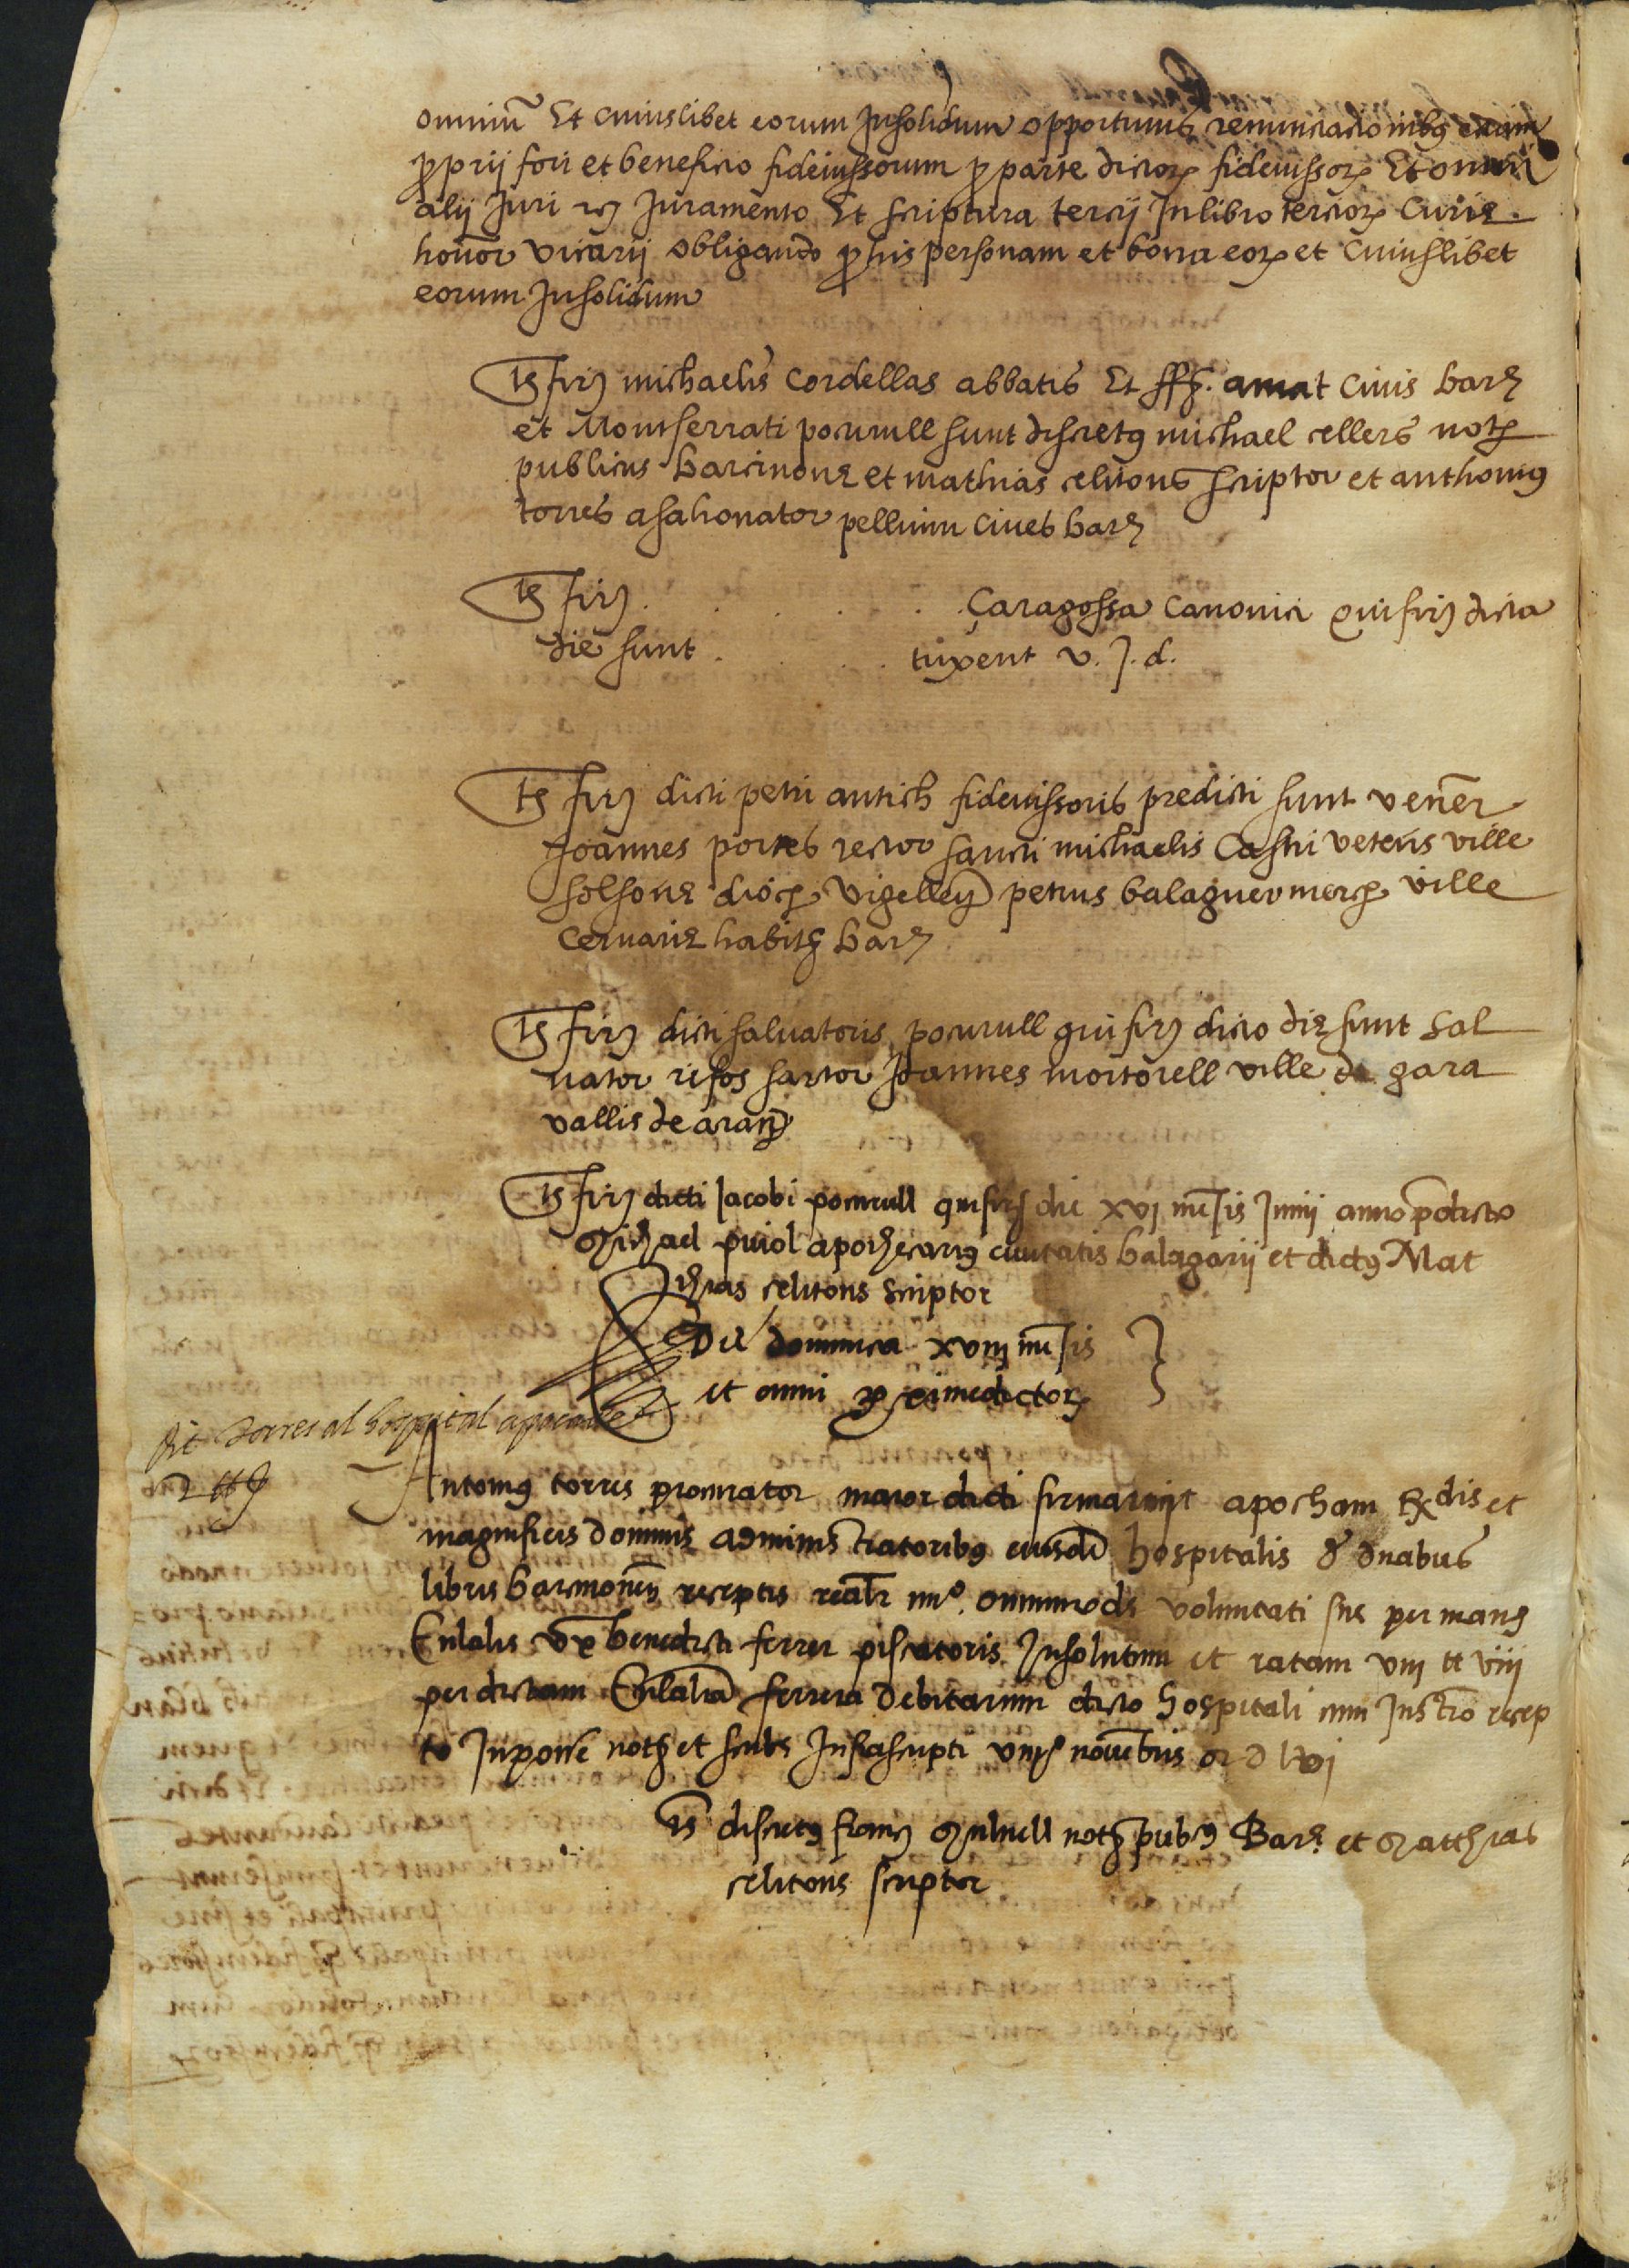 omniũ Et cuiuslibet eorum Insolidum opportunis renunciacionibꝯ eciam
ꝓprij fori et beneficio fideiussorum ꝓ parte dictoꝝ fideiussoꝝ Et omni
alij Juri rꝯ Juramento Et scriptura tercij In libro tercioꝝ Curie
honor vicarij obligando ꝓ his personam et bona eoꝝ et cuiuslibet
eorum Insolidum
Tꝭ firꝭ michaelis cordellas abbatis Et ffꝭ. amat ciuis barꝭ
et Montserrati pocurull sunt discretꝯ michael cellers notꝭ
publicus barcinone et mathias celitons scriptor et anthoniꝯ
torres asahonator pellium ciues barꝭ
Tꝭ firꝭ . . . . . . Çaragossa canonici qui firꝭ dicta
die sunt . . . . tixent v. J. d.
Tꝭ firꝭ dicti petri antich fideiussoris predicti sunt vener
Joannes portes rector sancti michaelis Castri veteris ville
solsone diocꝭ vrgelleñ petrus balaguer mercꝭ ville
ceruarie habitꝭ barꝭ
Tꝭ firꝭ dicti saluatoris pocurull qui firꝭ dicto die sunt sal
uator risos sartor Joannes mortorell ville de gara
vallis de arañ
Tꝭ firꝭ dicti Jacobi pocurull qui firꝭ die xvj mẽsis Junij anno p̃dicto
Michael puiol apothecariꝯ ciuitatis balagarij et dictꝯ Mat
thias celitons scriptor
Die dominica xviij mẽsis
et anni proximedictoꝝ
Ait Torres al hospital
2 ꝉꝉ
Antoniꝯ torres procurator maior dicti firmauit apocham Rdis et
magnificis dominis administratoribꝯ eiusdẽ hospitalis de duabus
libris barcinoneñ receptis realr̃ nr̃o omnimode voluntati sue per manꝯ
Eulalie vx̃ benedicti ferrer piscatoris Insolutum et ratam viij ꝉꝉ viij
per dictam Eulaliã ferrera debitarum dicto hospitali cum Instr̃o recep
to In posse notꝭ et scribe Infrascripti novẽbris M D lvj
Tꝭ discretꝯ francꝭ Mulnell notꝭ pubcꝯ Barꝭ et Matthias
celitons scriptor